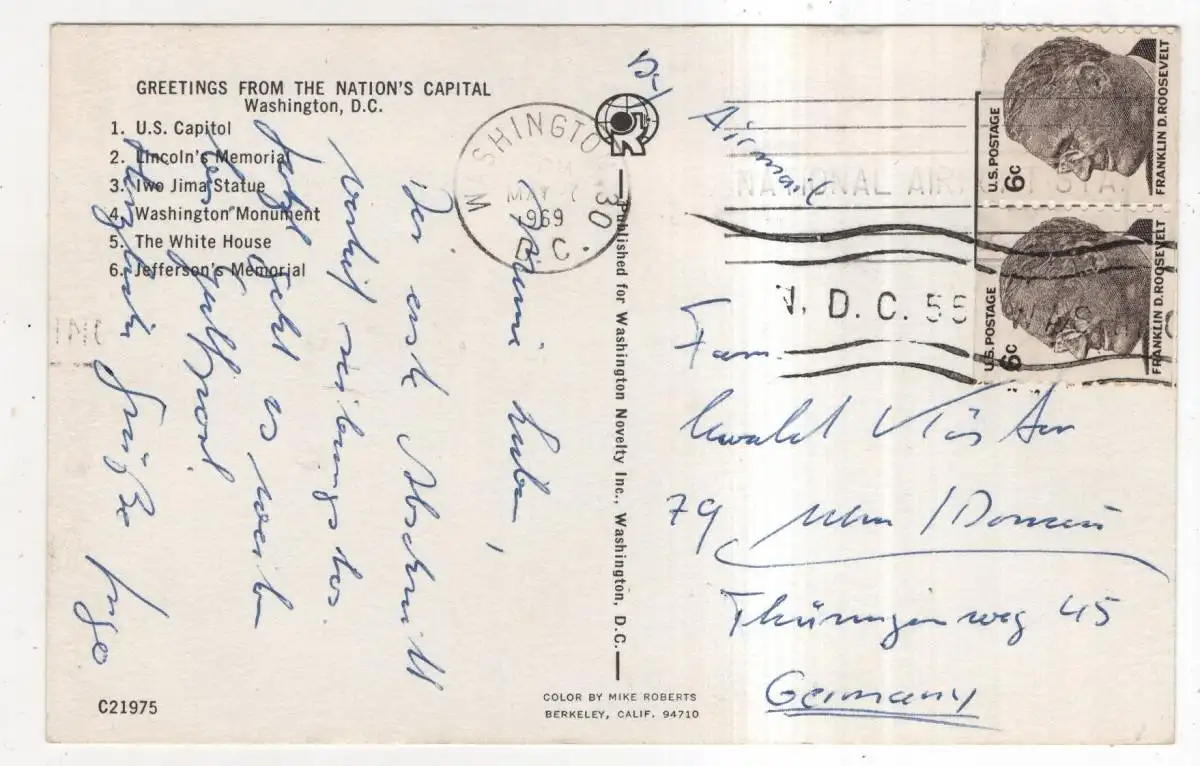 GREETINGS FROM THE NATION'S CAPITAL
Washington, D.C.
1. U.S. Capitol
2. Lincoln's Memorial
3. Iwo Jima Statue
4. Washington Monument
5. The White House
6. Jefferson's Memorial
Lieben,
Der erste Abschnitt
verlief reibungslos.
Jetzt geht es weiter
Herzliche Grüße Ingo
C21975
Published for Washington Novelty Inc., Washington, D.C.
COLOR BY MIKE ROBERTS
BERKELEY, CALIF. 94710
WASHINGTO
1969
D.C.
30
NATIONAL AIR STA.
D.C. 55
U.S. POSTAGE
6c
FRANKLIN D. ROOSEVELT
U.S. POSTAGE
6c
FRANKLIN D. ROOSEVELT
Airmail
Fam.
Ewald
79 Ulm/Donau
Thüringenweg 45
Germany